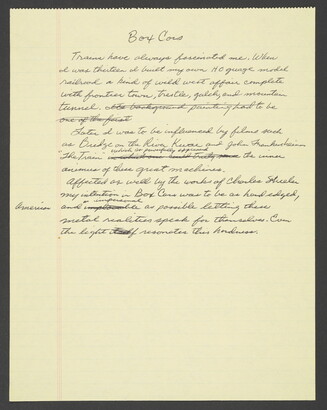 Box Cars
Trains have always fascinated me. When
I was thirteen I built my own HO guage model
railroad a kind of wild west affair complete
with frontier town, trestle, gulch, and mountain
tunnel. Its background painting had to be
one of the first
Later I was to be influenced by films such
as Bridge on the River Kwai and John Frankenheimer
The Train which so powerfully expressed the inner
avenues of these great machines.
Affected as well by the work of Charles Sheeler
my intention in Box Cars was to be as hard edged,
American
and as impersonal as possible letting these
metal realities speak for themselves. Even
the light itself resonates this hardness.